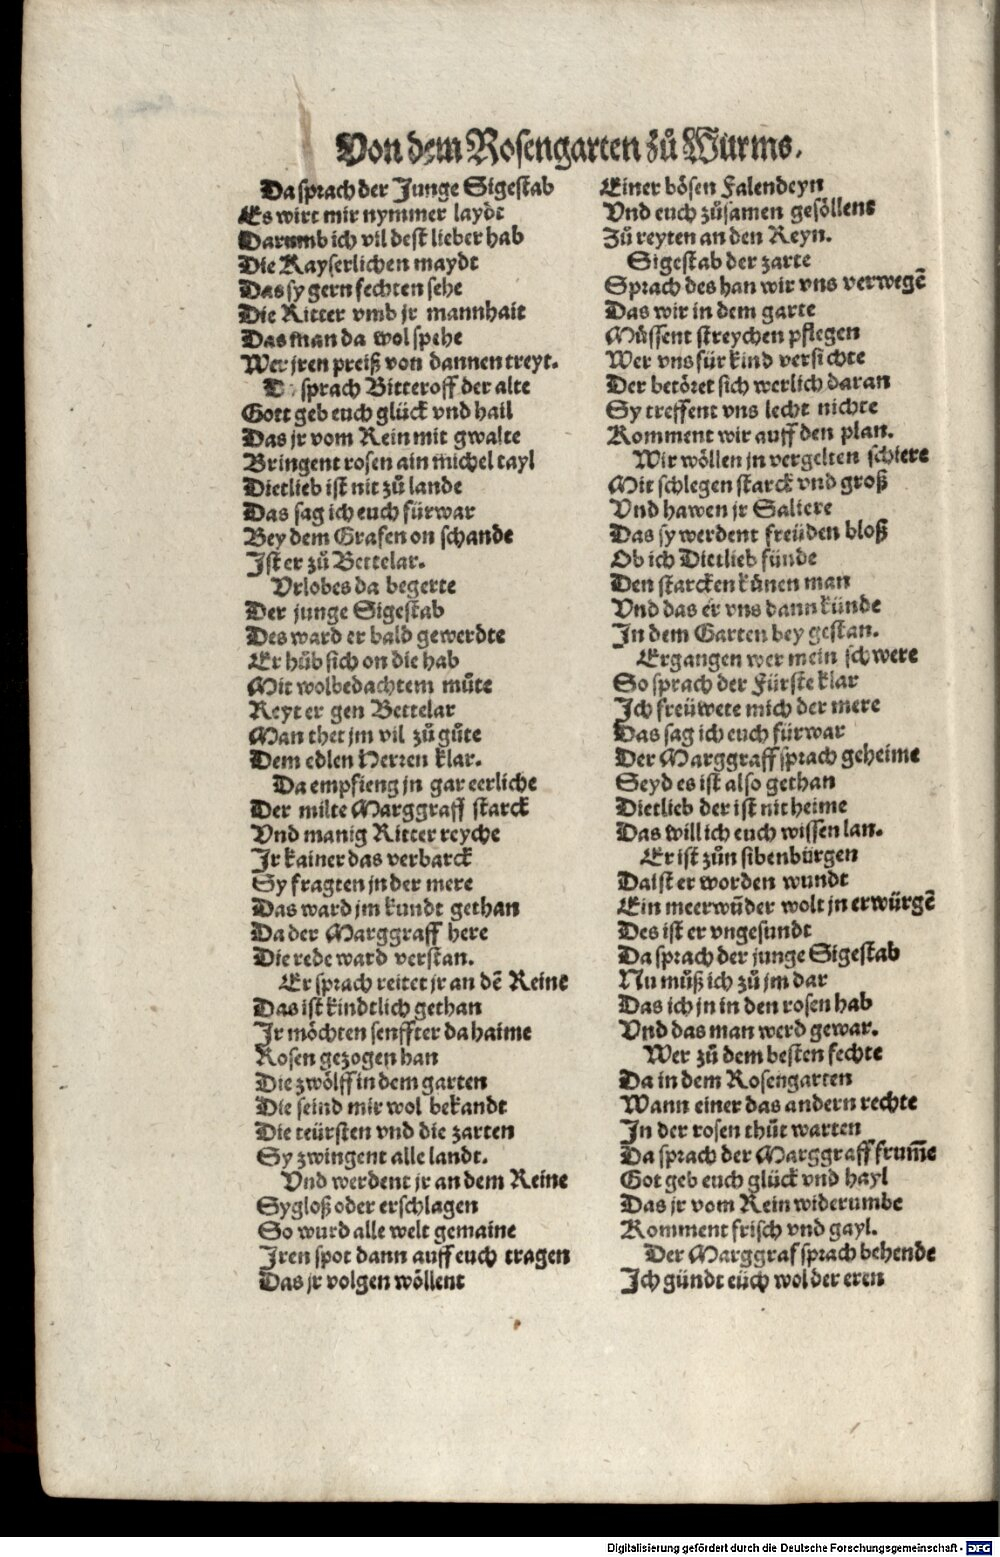 Von dem Rosengarten zů Wurms.
Da sprach der Junge Sigestab
Es wirt mir nymmer laydt
Darumb ich vil dest lieber hab
Die Kayserlichen maydt
Das sy gern fechten sehe
Die Ritter vmb jr mannhait
Das man da wol spehe
Wer jren preiß von dannen treyt.
Do sprach Bitteroff der alte
Gott geb euch glück vnd hail
Das jr vom Rein mit gwalte
Bringent rosen ain michel tayl
Dietlieb ist nit zů lande
Das sag ich euch fürwar
Bey dem Grafen on schande
Ist er zů Bettelar.
Vrlobes da begerte
Der junge Sigestab
Des ward er bald gewerdte
Er hůb sich on die hab
Mit wolbedachtem můte
Reyt er gen Bettelar
Man thet jm vil zů gůte
Dem edlen Herren klar.
Da empfieng jn gar eerliche
Der milte Marggraff starck
Vnd manig Ritter reyche
Ir kainer das verbarck
Sy fragten jn der mere
Das ward jm kundt gethan
Da der Marggraff here
Die rede ward verstan.
Er sprach reitet jr an dē Reine
Das ist kindtlich gethan
Ir möchten senffter da haime
Rosen gezogen han
Die zwölff in dem garten
Die seind mir wol bekandt
Die teürsten vnd die zarten
Sy zwingent alle landt.
Vnd werdent jr an dem Reine
Sygloß oder erschlagen
So wurd alle welt gemaine
Iren spot dann auff euch tragen
Das jr volgen wöllent
Einer bösen Falendeyn
Vnd euch zůsamen gesöllent
Zů reyten an den Reyn.
Sigestab der zarte
Sprach des han wir vns verwegē
Das wir in dem garte
Müssent streychen pflegen
Wer vns für kind versichte
Der betöret sich werlich daran
Sy treffent vns lecht nichte
Komment wir auff den plan.
Wir wöllen jn vergelten schiere
Mit schlegen starck vnd groß
Vnd hawen jr Saliere
Das sy werdent freüden bloß
Ob ich Dietlieb fünde
Den starcken künen man
Vnd das er vns dann künde
In dem Garten bey gestan.
Ergangen wer mein schwere
So sprach der Fürste klar
Ich freüwete mich der mere
Das sag ich euch fürwar
Der Marggraff sprach geheime
Seyd es ist also gethan
Dietlieb der ist nit heime
Das will ich euch wissen lan.
Er ist zůn sibenbürgen
Da ist er worden wundt
Ein meerwūder wolt jn erwürgē
Des ist er vngesundt
Da sprach der junge Sigestab
Nu můß ich zů jm dar
Das ich jn in den rosen hab
Vnd das man werd gewar.
Wer zů dem besten fechte
Da in dem Rosengarten
Wann einer das andern rechte
In der rosen thůt warten
Da sprach der Marggraff frum̄e
Got geb euch glück vnd hayl
Das jr vom Rein widerumbe
Komment frisch vnd gayl.
Der Marggraf sprach behende
Ich gündt eüch wol der eren
Digitalisierung gefördert durch die Deutsche Forschungsgemeinschaft - DFG